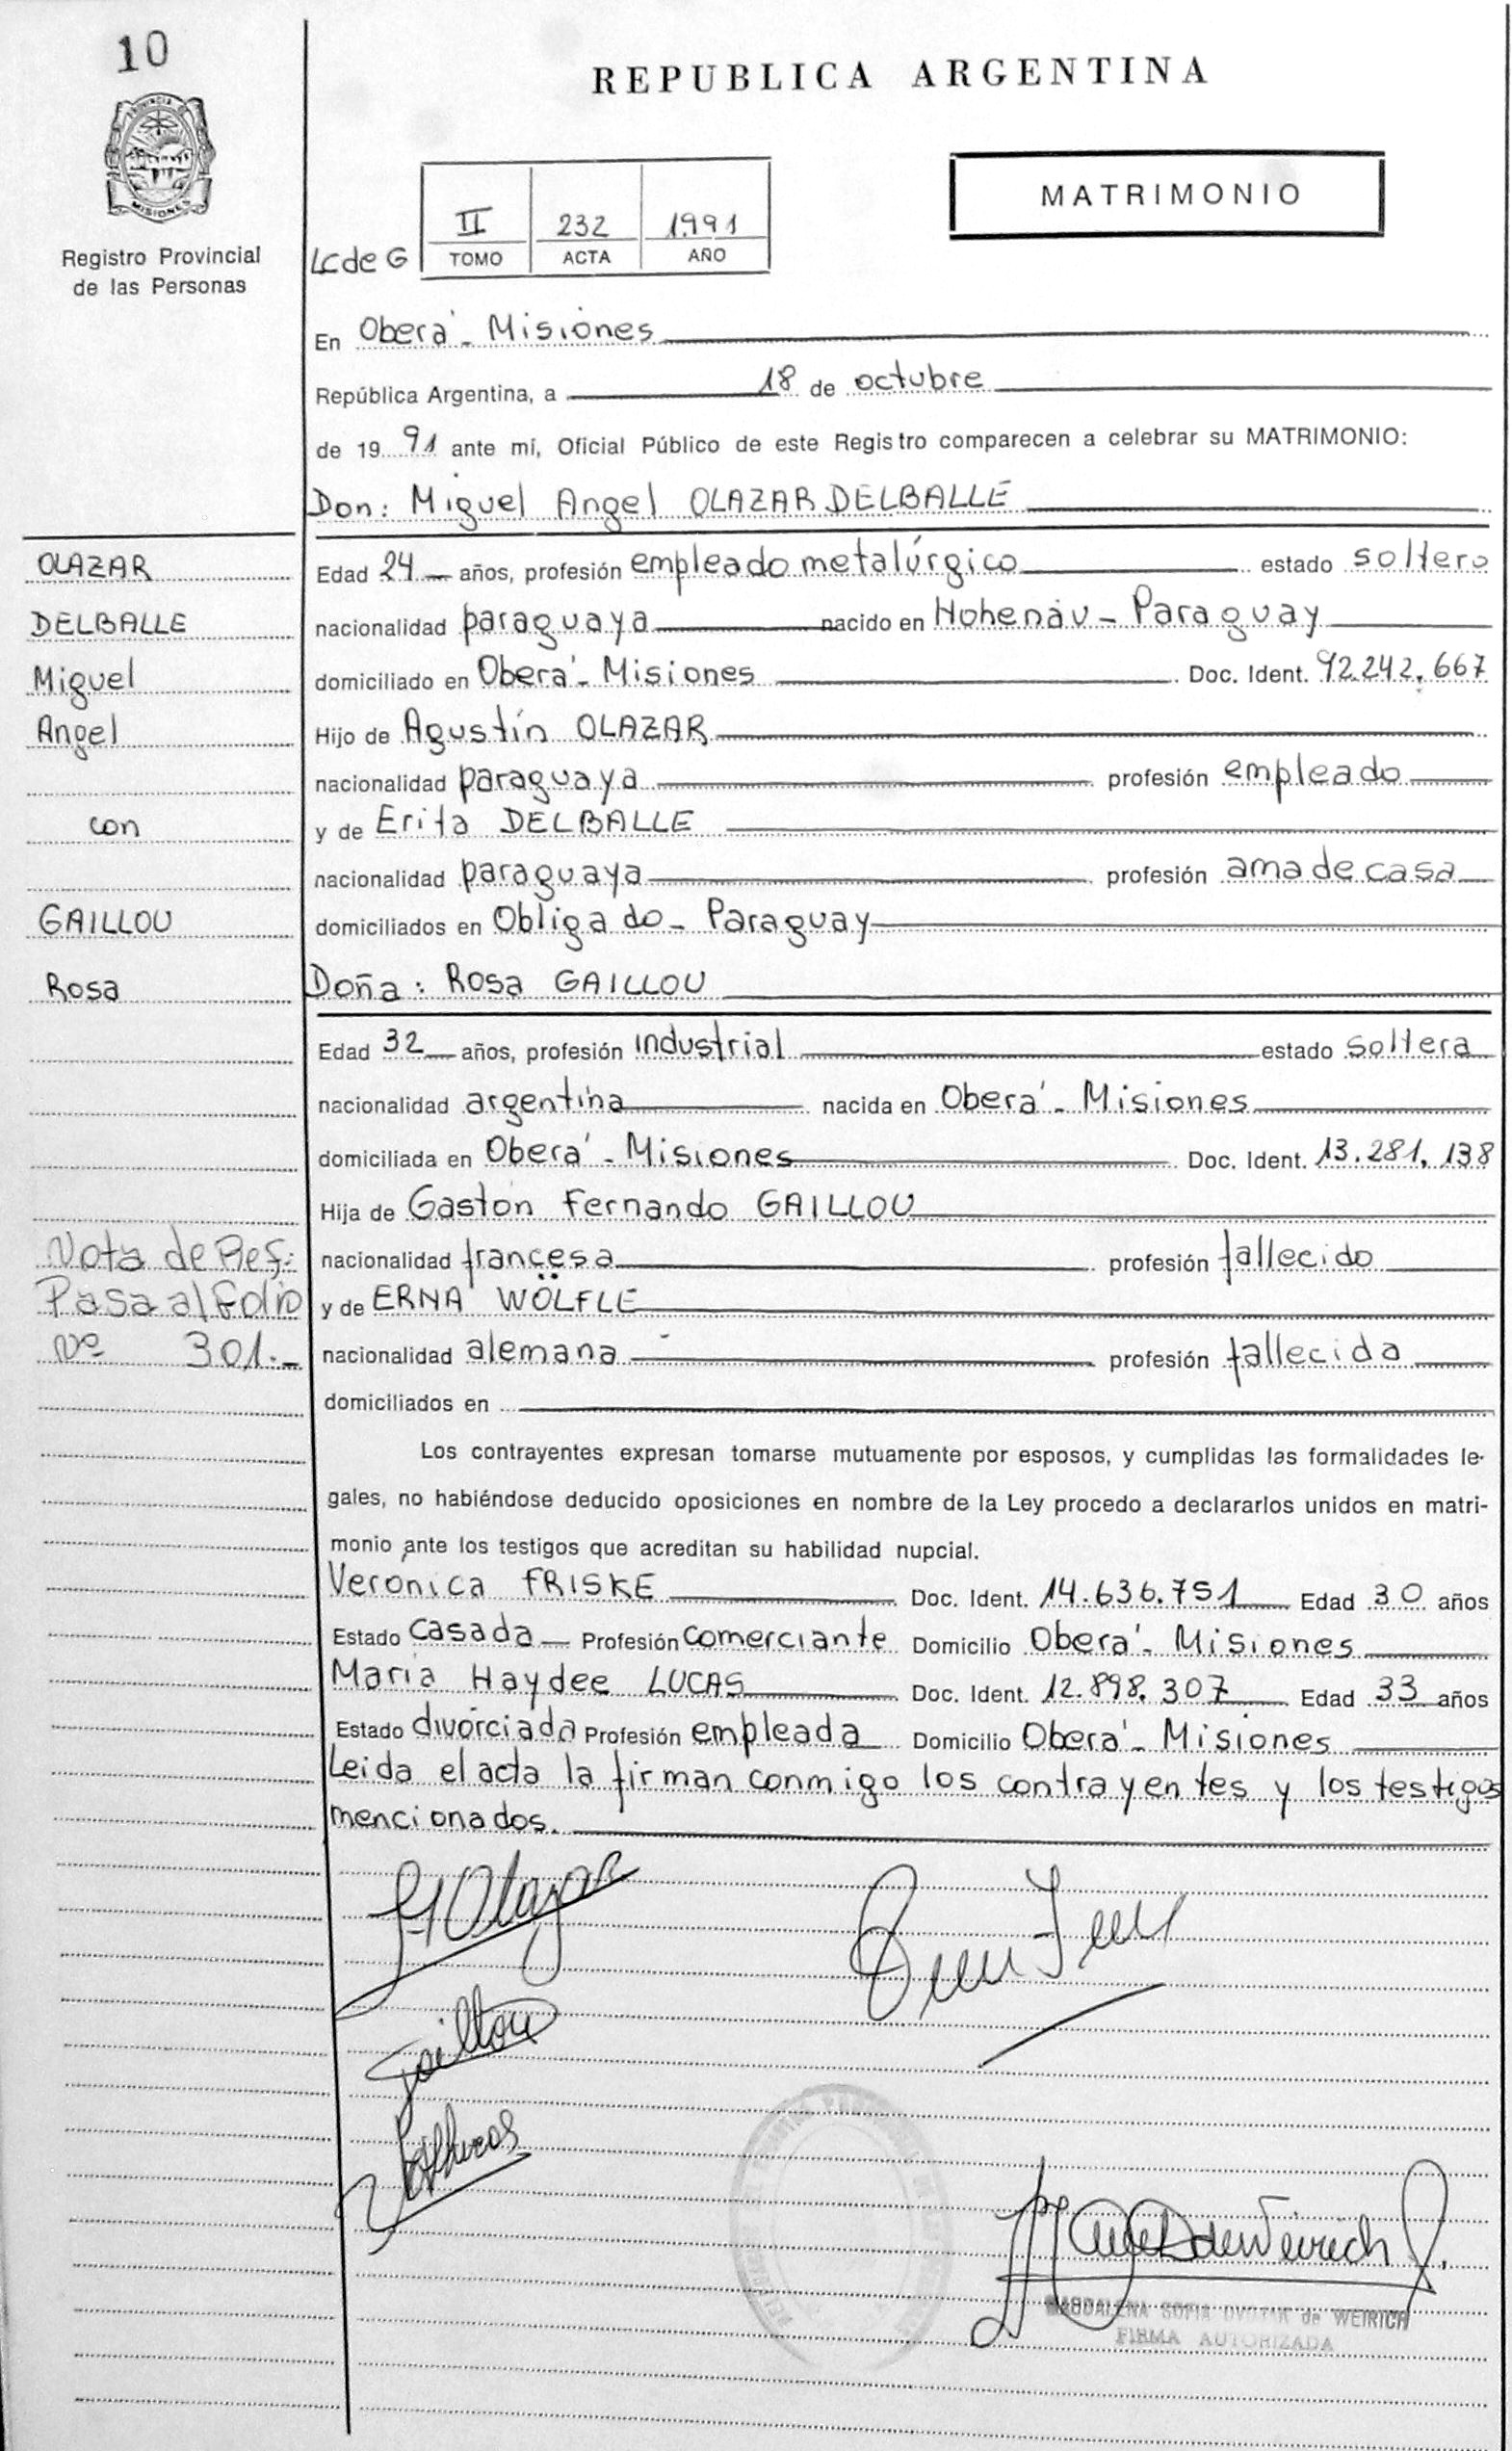 10
REPUBLICA ARGENTINA
PROVINCIA DE
MISIONES
MATRIMONIO
Registro Provincial
de las Personas
Lc de G
II 232 1.991
TOMO ACTA AÑO
En Oberá - Misiones
República Argentina, a 18 de octubre
de 19 91 ante mí, Oficial Público de este Registro comparecen a celebrar su MATRIMONIO:
Don: Miguel Angel OLAZAR DELBALLE
OLAZAR
DELBALLE
Miguel
Angel
con
GAILLOU
Rosa
Edad 24 años, profesión empleado metalúrgico estado soltero
nacionalidad paraguaya nacido en Hohenau - Paraguay
domiciliado en Oberá - Misiones Doc. Ident. 92.242.667
Hijo de Agustín OLAZAR
nacionalidad paraguaya profesión empleado
y de Erita DELBALLE
nacionalidad paraguaya profesión ama de casa
domiciliados en Obligado - Paraguay
Doña: Rosa GAILLOU
Edad 32 años, profesión industrial estado soltera
nacionalidad argentina nacida en Oberá - Misiones
domiciliada en Oberá - Misiones Doc. Ident. 13.281.138
Hija de Gaston Fernando GAILLOU
nacionalidad francesa profesión fallecido
y de ERNA WÖLFLE
nacionalidad alemana profesión fallecida
domiciliados en
Nota de Ref:
Pasa al folio
Nº 301.-
Los contrayentes expresan tomarse mutuamente por esposos, y cumplidas las formalidades le-
gales, no habiéndose deducido oposiciones en nombre de la Ley procedo a declararlos unidos en matri-
monio ante los testigos que acreditan su habilidad nupcial.
Verónica FRISKE Doc. Ident. 14.636.751 Edad 30 años
Estado casada Profesión comerciante Domicilio Oberá - Misiones
María Haydee LUCAS Doc. Ident. 12.898.307 Edad 33 años
Estado divorciada Profesión empleada Domicilio Oberá - Misiones
Leida el acta la firman conmigo los contrayentes y los testigos
mencionados.
Olazar
Gaillou
de Weirich
MAGDALENA SOFIA de WEIRICH
FIRMA AUTORIZADA